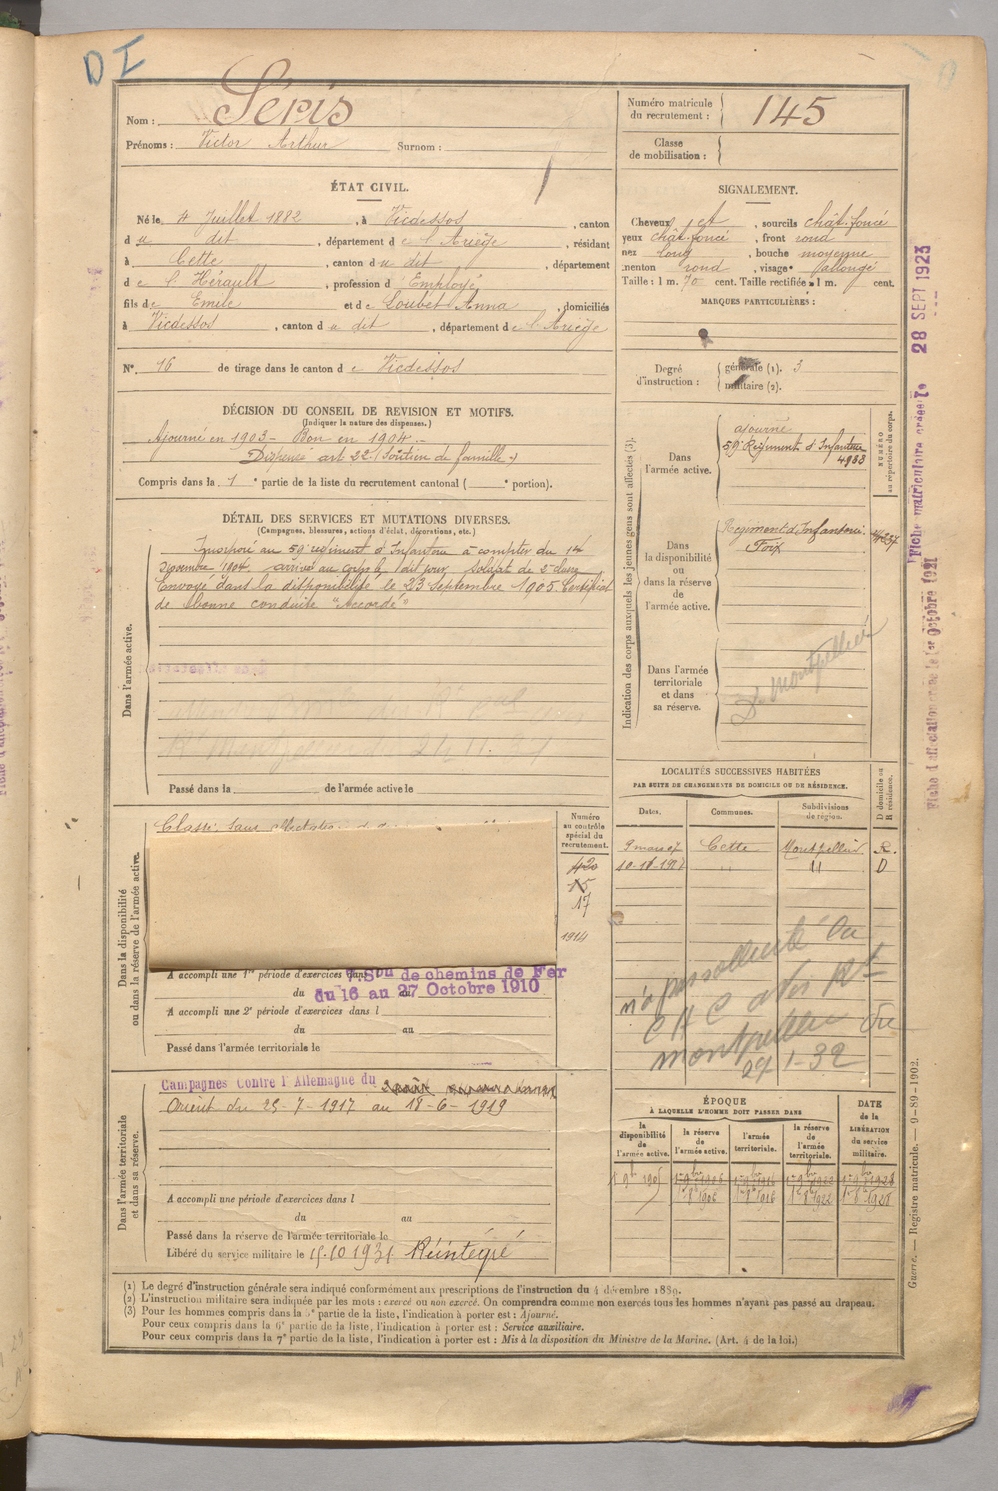 D I
Nom : Séris
Prénoms : Victor Arthur Surnom :
Numéro matricule du recrutement : 145
Classe de mobilisation :
ÉTAT CIVIL.
Né le 4 Juillet 1882, à Vicdessos, canton
du dit, département de l'Ariège, résidant
à Cette, canton du dit, département
de l'Hérault, profession d'Employé
fils de Emile et de Loubet Anna, domiciliés
à Vicdessos, canton du dit, département de l'Ariège
N° 16 de tirage dans le canton de Vicdessos
SIGNALEMENT.
Cheveux jet, sourcils chât-foncé
yeux chât-foncé, front rond
nez long, bouche moyenne
menton rond, visage allongé
Taille : 1 m. 70 cent. Taille rectifiée : 1 m. cent.
MARQUES PARTICULIÈRES :
Degré d'instruction :
générale (1). 3
militaire (2).
DÉCISION DU CONSEIL DE REVISION ET MOTIFS.
(Indiquer la nature des dispenses.)
Ajourné en 1903 - Bon en 1904 -
Dispensé art 22 (Soutien de famille)
Compris dans la 1e partie de la liste du recrutement cantonal ( e portion).
DÉTAIL DES SERVICES ET MUTATIONS DIVERSES.
(Campagnes, blessures, actions d'éclat, décorations, etc.)
Dans l'armée active.
Incorporé au 59e régiment d'Infanterie à compter du 14
Novembre 1904, arrivé au corps le dit jour, soldat de 2e classe
Envoyé dans la disponibilité le 23 Septembre 1905. Certificat
de bonne conduite "Accordé"
Passé dans la de l'armée active le
Indication des corps auxquels les jeunes gens sont affectés (3).
NUMÉRO au répertoire du corps.
Dans l'armée active.
ajourné
59e Régiment d'Infanterie
4933
Dans la disponibilité ou dans la réserve de l'armée active.
Régiment d'Infanterie
Foix
Dans l'armée territoriale et dans sa réserve.
Montpellier
LOCALITÉS SUCCESSIVES HABITÉES
PAR SUITE DE CHANGEMENTS DE DOMICILE OU DE RÉSIDENCE.
Dates. Communes. Subdivisions de région. D domicile ou R résidence.
9 mars 07 Cette Montpellier R.
10-11-1927 " " D
Dans la disponibilité ou dans la réserve de l'armée active.
Classé sans affectation
Numéro au contrôle spécial du recrutement.
420
15
17
1914
A accompli une 1re période d'exercices dans
Son de chemins de Fer
du 16 au 27 Octobre 1910
A accompli une 2e période d'exercices dans l
du au
Passé dans l'armée territoriale le
n'a pas
Montpellier
1-32
Dans l'armée territoriale et dans sa réserve.
Campagnes Contre l'Allemagne du
Orient du 25-7-1917 au 18-6-1919
A accompli une période d'exercices dans l
du au
Passé dans la réserve de l'armée territoriale le
Libéré du service militaire le 15.10 1931 Réintégré
ÉPOQUE
À LAQUELLE L'HOMME DOIT PASSER DANS
la disponibilité de l'armée active. la réserve de l'armée active. l'armée territoriale. la réserve de l'armée territoriale.
DATE de la LIBÉRATION du service militaire.
(1) Le degré d'instruction générale sera indiqué conformément aux prescriptions de l'instruction du 4 décembre 1889.
(2) L'instruction militaire sera indiquée par les mots : exercé ou non exercé. On comprendra comme non exercés tous les hommes n'ayant pas passé au drapeau.
(3) Pour les hommes compris dans la 5e partie de la liste, l'indication à porter est : Ajourné.
Pour ceux compris dans la 6e partie de la liste, l'indication à porter est : Service auxiliaire.
Pour ceux compris dans la 7e partie de la liste, l'indication à porter est : Mis à la disposition du Ministre de la Marine. (Art. 4 de la loi.)
Guerre. — Registre matricule. — 9-89-1902.
Fiche matriculaire créée le 28 SEPT 1923
Fiche d'affectation créée le 1er octobre 1921